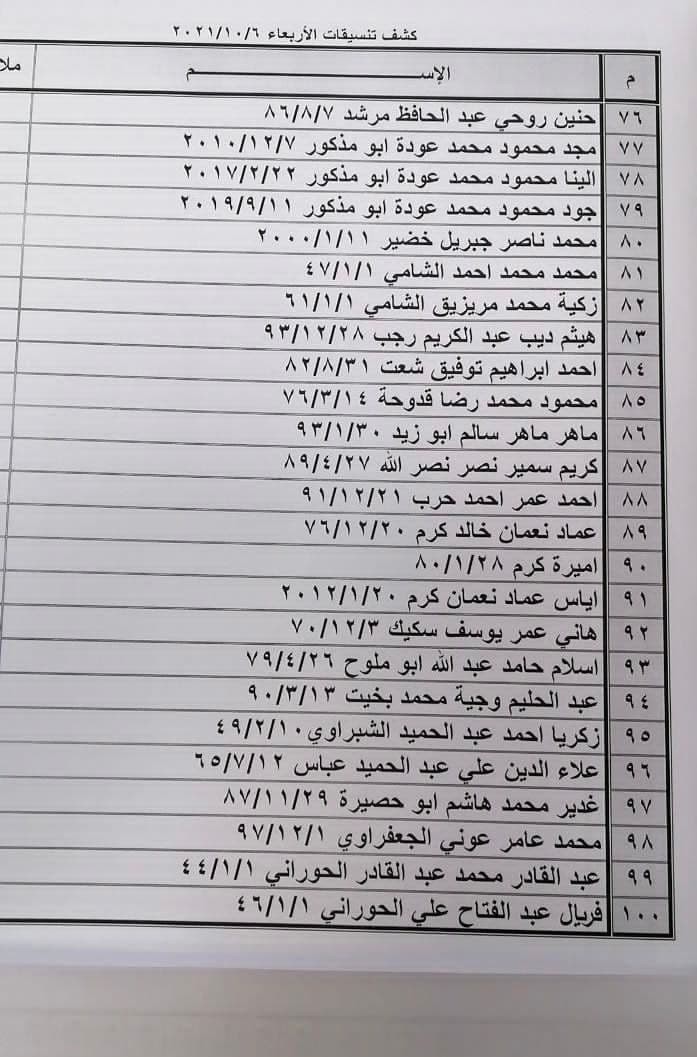 كشف تنسيقات الأربعاء ٢٠٢١/١٠/٦
م الإســـــــــــــــــم ملا
٧٦ حنين روحي عبد الحافظ مرشد ٨٦/٨/٧
٧٧ مجد محمود محمد عودة ابو مذكور ٢٠١٠/١٢/٧
٧٨ الينا محمود محمد عودة ابو مذكور ٢٠١٧/٢/٢٢
٧٩ جود محمود محمد عودة ابو مذكور ٢٠١٩/٩/١١
٨٠ محمد ناصر جبريل خضير ٢٠٠٠/١/١١
٨١ محمد محمد احمد الشامي ٤٧/١/١
٨٢ زكية محمد مريزيق الشامي ٦١/١/١
٨٣ هيثم ديب عبد الكريم رجب ٩٣/١٢/٢٨
٨٤ احمد ابراهيم توفيق شعت ٨٢/٨/٣١
٨٥ محمود محمد رضا قدوحة ٧٦/٣/١٤
٨٦ ماهر ماهر سالم ابو زيد ٩٣/١/٣٠
٨٧ كريم سمير نصر نصر الله ٨٩/٤/٢٧
٨٨ احمد عمر احمد حرب ٩١/١٢/٢١
٨٩ عماد نعمان خالد كرم ٧٦/١٢/٢٠
٩٠ اميرة كرم ٨٠/١/٢٨
٩١ اياس عماد نعمان كرم ٢٠١٢/١/٢٠
٩٢ هاني عمر يوسف سكيك ٧٠/١٢/٣
٩٣ اسلام حامد عبد الله ابو ملوح ٧٩/٤/٢٦
٩٤ عبد الحليم وجية محمد بخيت ٩٠/٣/١٣
٩٥ زكريا احمد عبد الحميد الشبراوي ٤٩/٢/١٠
٩٦ علاء الدين علي عبد الحميد عباس ٦٥/٧/١٢
٩٧ غدير محمد هاشم ابو حصيرة ٨٧/١١/٢٩
٩٨ محمد عامر عوني الجعفراوي ٩٧/١٢/١
٩٩ عبد القادر محمد عبد القادر الحوراني ٤٤/١/١
١٠٠ فريال عبد الفتاح علي الحوراني ٤٦/١/١